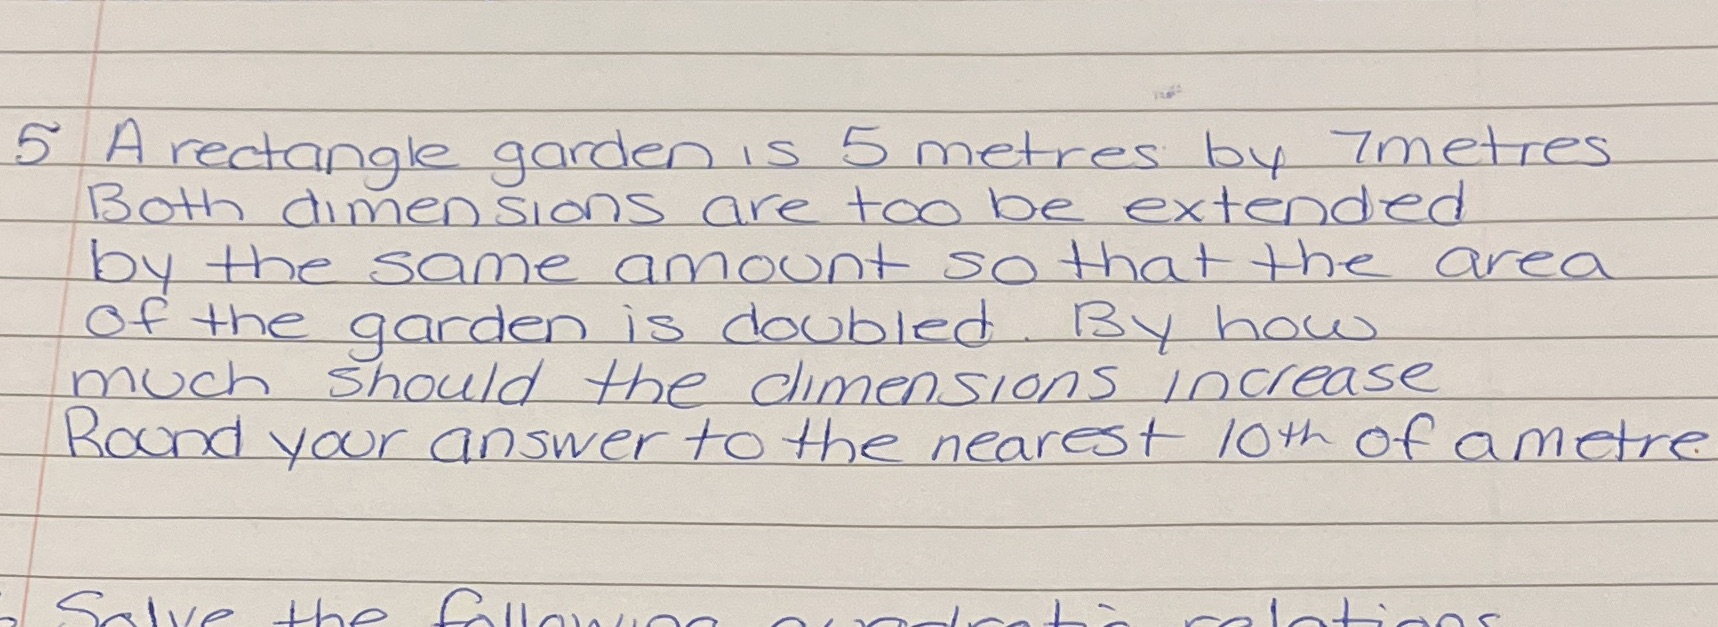 5 A rectangle garden is 5 metres by 7metres
Both dimensions are too be extended
by the same amount so that the area
of the garden is doubled. By how
much should the dimensions increase
Round your answer to the nearest 10th of a metre.
Solve the following quadratic relations